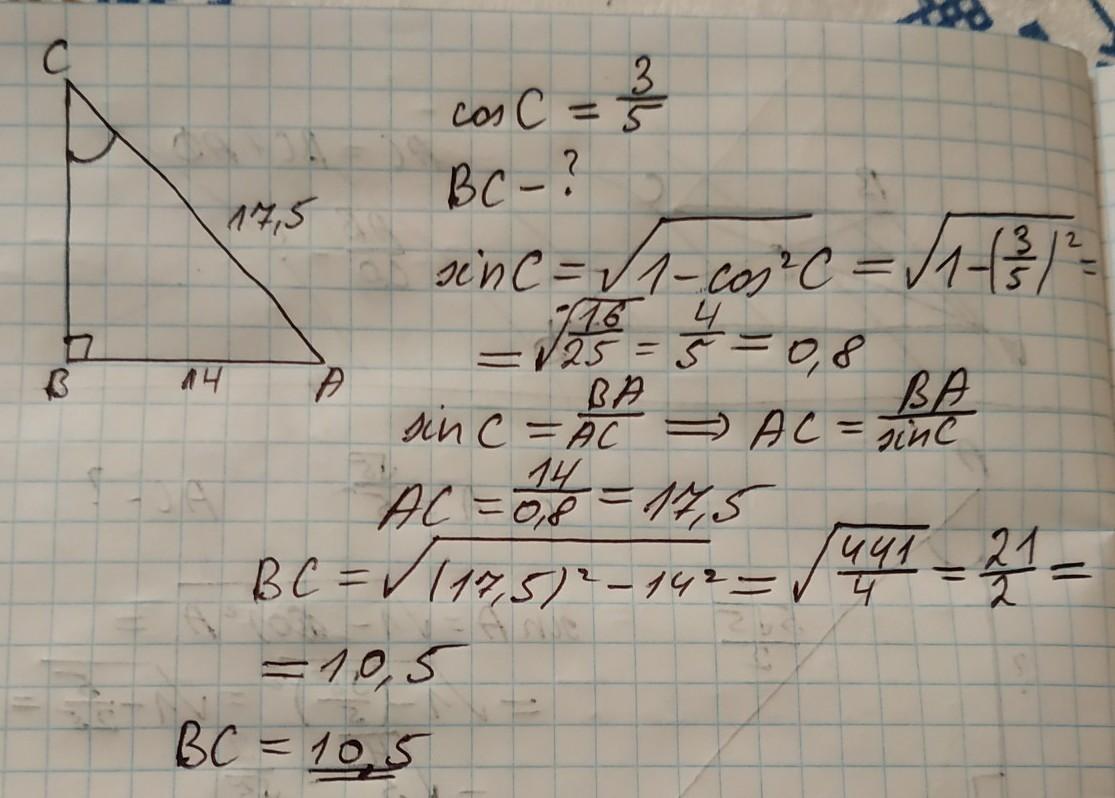 C
cosC = 3/5
BC - ?
17,5
sinC = √(1-cos²C) = √(1-(3/5)²) =
= √(16/25) = 4/5 = 0,8
B 14 A
sinC = BA/AC ⟹ AC = BA/sinC
AC = 14/0,8 = 17,5
BC = √((17,5)² - 14²) = √(441/4) = 21/2 =
= 10,5
BC = 10,5